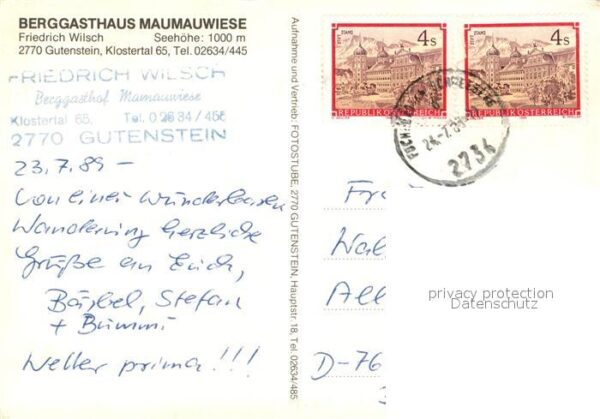 BERGGASTHAUS MAUMAUWIESE
Friedrich Wilsch Seehöhe: 1000 m
2770 Gutenstein, Klostertal 65, Tel. 02634/445
FRIEDRICH WILSCH
Berggasthof Mamauwiese
Klostertal 65, Tel. 02634/456
2770 GUTENSTEIN
23.7.89 –
Von einer wunderbaren
Wanderung herzliche
Grüße an Euch,
Bärbel, Stefan
+ Bimmi
Wetter prima!!!
Aufnahme und Vertrieb: FOTOSTUBE, 2770 GUTENSTEIN, Hauptstr. 18, Tel. 02634/485
STIFT STAMS
4 S
REPUBLIK ÖSTERREICH
STIFT STAMS
4 S
REPUBLIK ÖSTERREICH
2734
Fr
Wal
All
D-76
privacy protection
Datenschutz